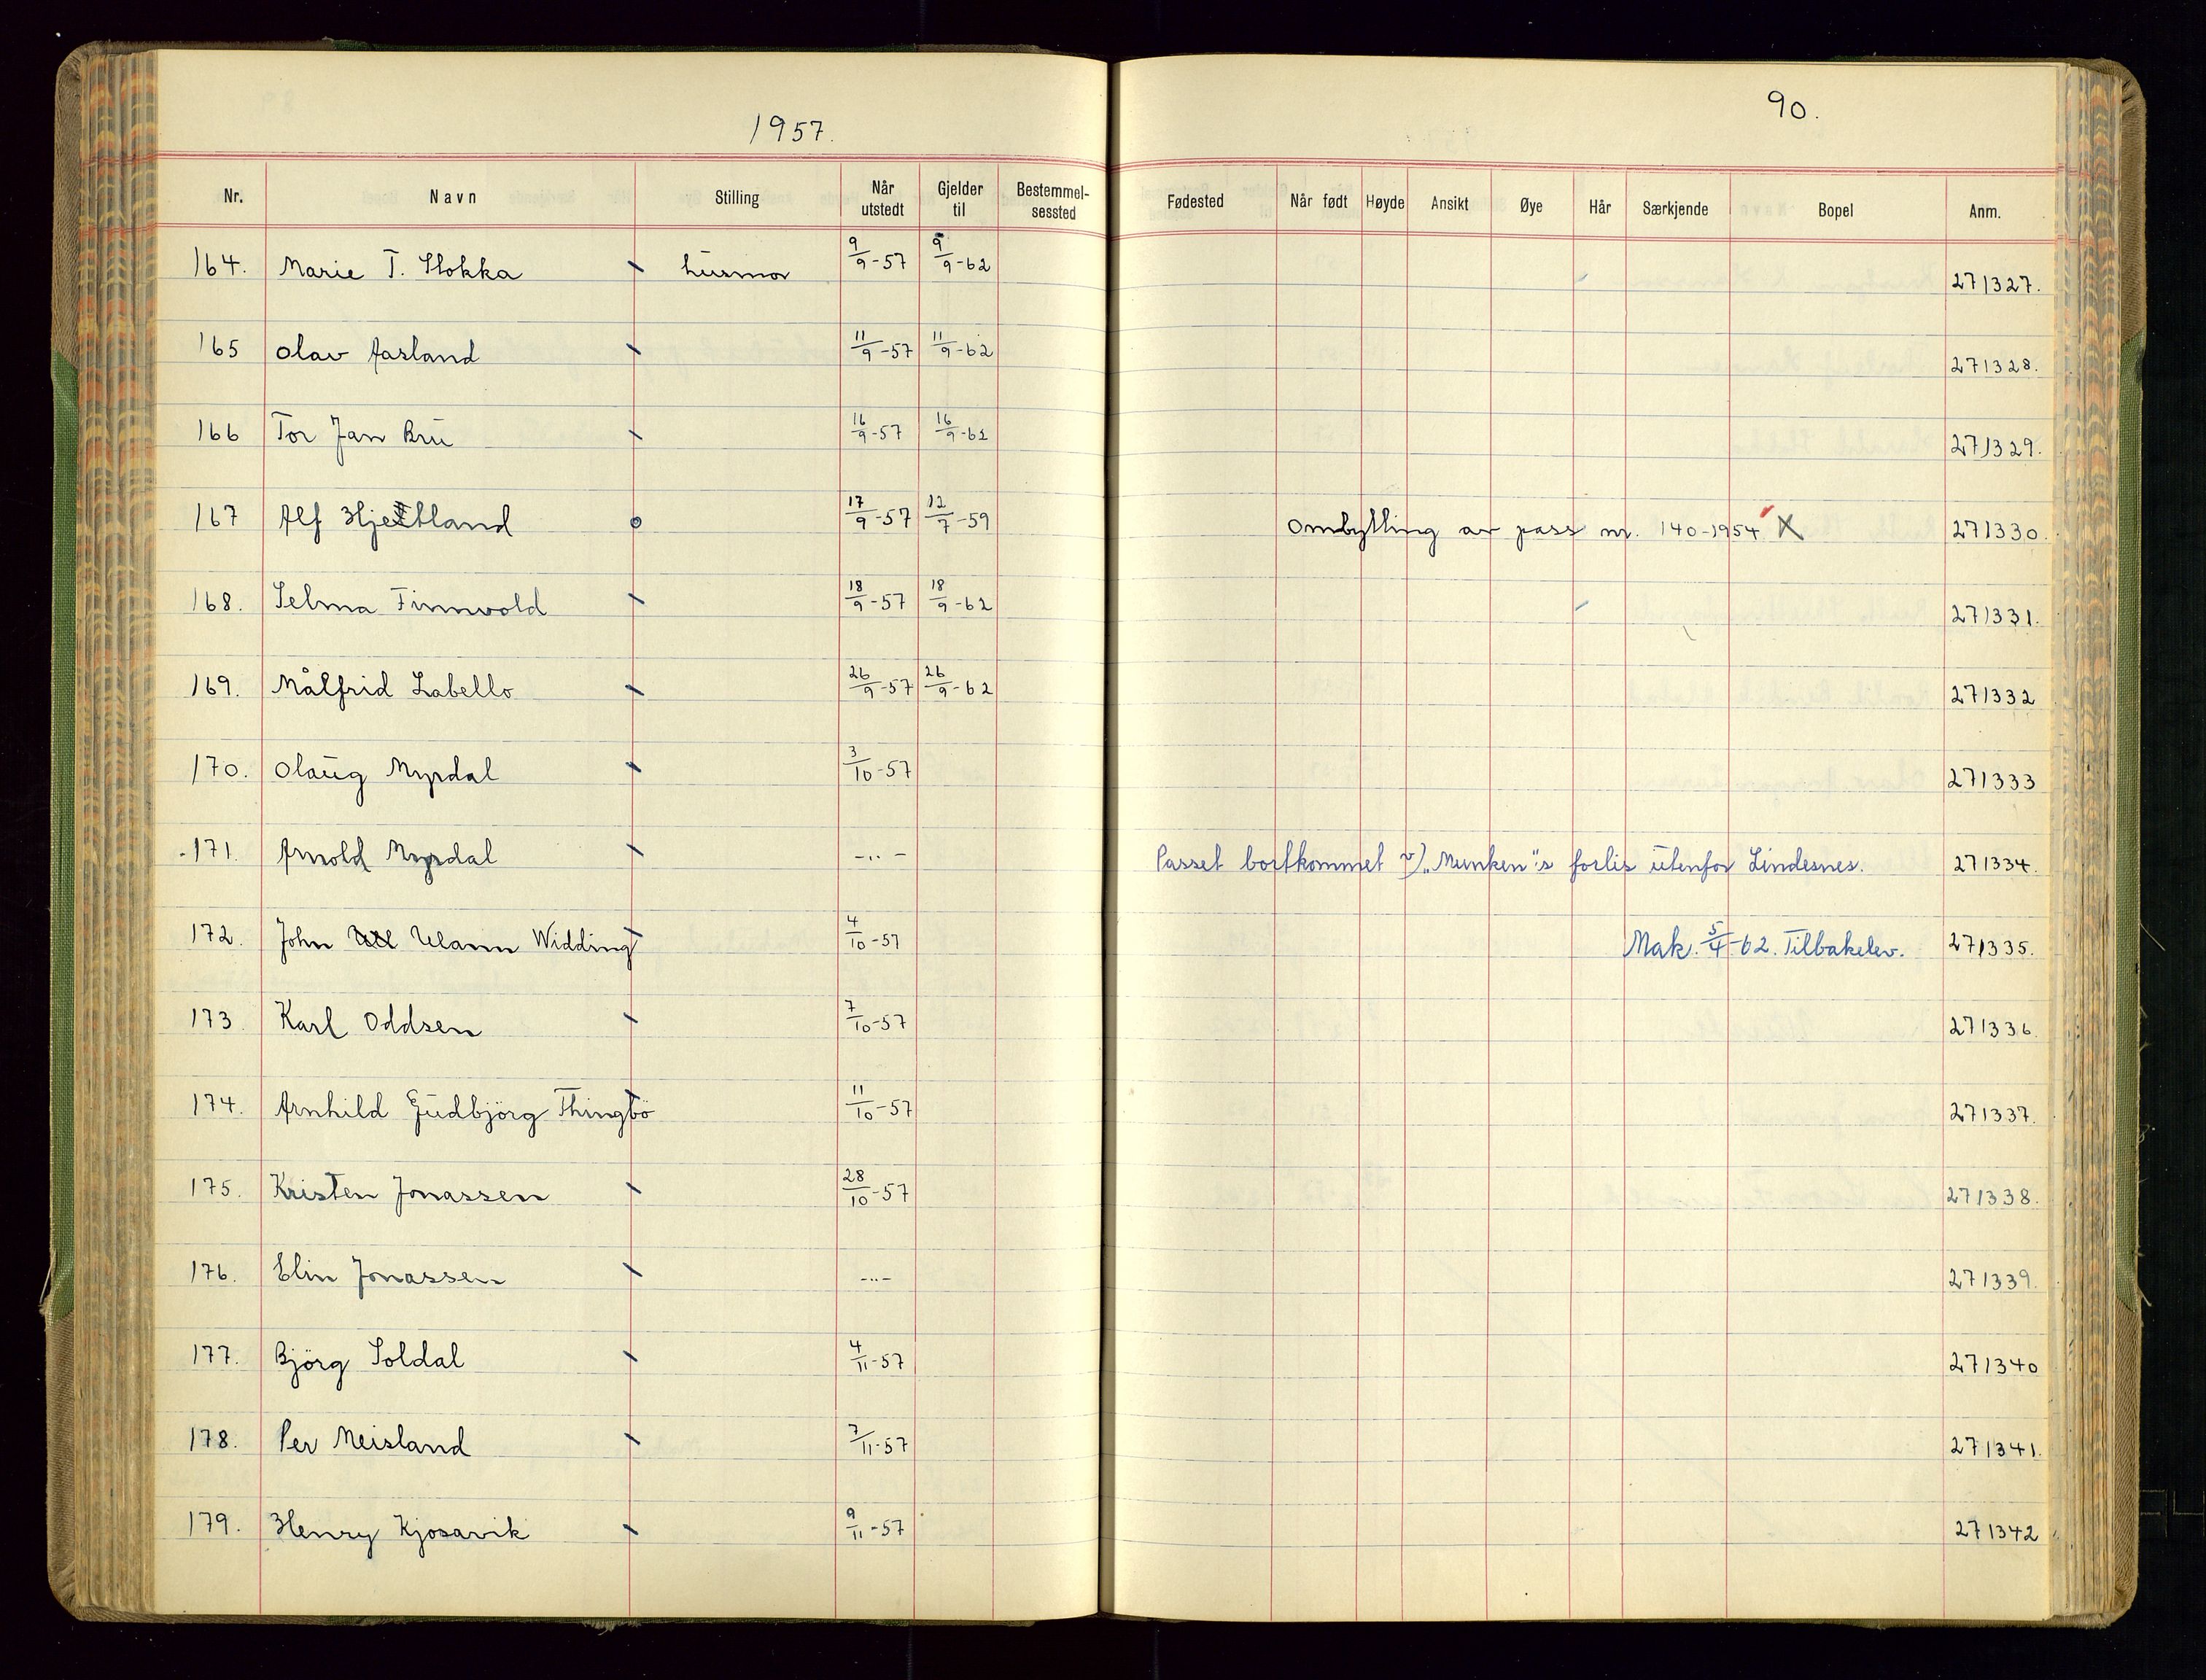 1957.
90.
Nr. Navn Stilling Når utstedt Gjelder til Bestemmel-sessted Fødested Når født Høyde Ansikt Øye Hår Særkjende Bopel Anm.
164. Marie T. Slokka husmor 9/9-57 9/9-62 271327.
165 Olav Aasland 11/9-57 11/9-62 271328.
166 Tor Jan Bru 16/9-57 16/9-62 271329.
167 Alf Hjetland 17/9-57 12/7-59 Ombytting av pass nr. 140-1954 X 271330.
168. Selma Finnvold 18/9-57 18/9-62 271331.
169. Målfrid Labello 26/9-57 26/9-62 271332
170. Olaug Myrdal 3/10-57 271333
171. Arnold Myrdal -..- Passet bortkommet v/ „Munken"s forlis utenfor Lindesnes. 271334.
172. John Ulann Widding 4/10-57 Mak. 5/4-62. Tilbakelev. 271335.
173 Karl Oddsen 7/10-57 271336.
174. Arnhild Gudbjörg Thingbö 11/10-57 271337.
175. Kristen Jonassen 28/10-57 271338.
176. Elin Jonassen -..- 271339.
177. Björg Soldal 4/11-57 271340
178. Per Meisland 7/11-57 271341.
179. Henry Kjosavik 9/11-57 271342